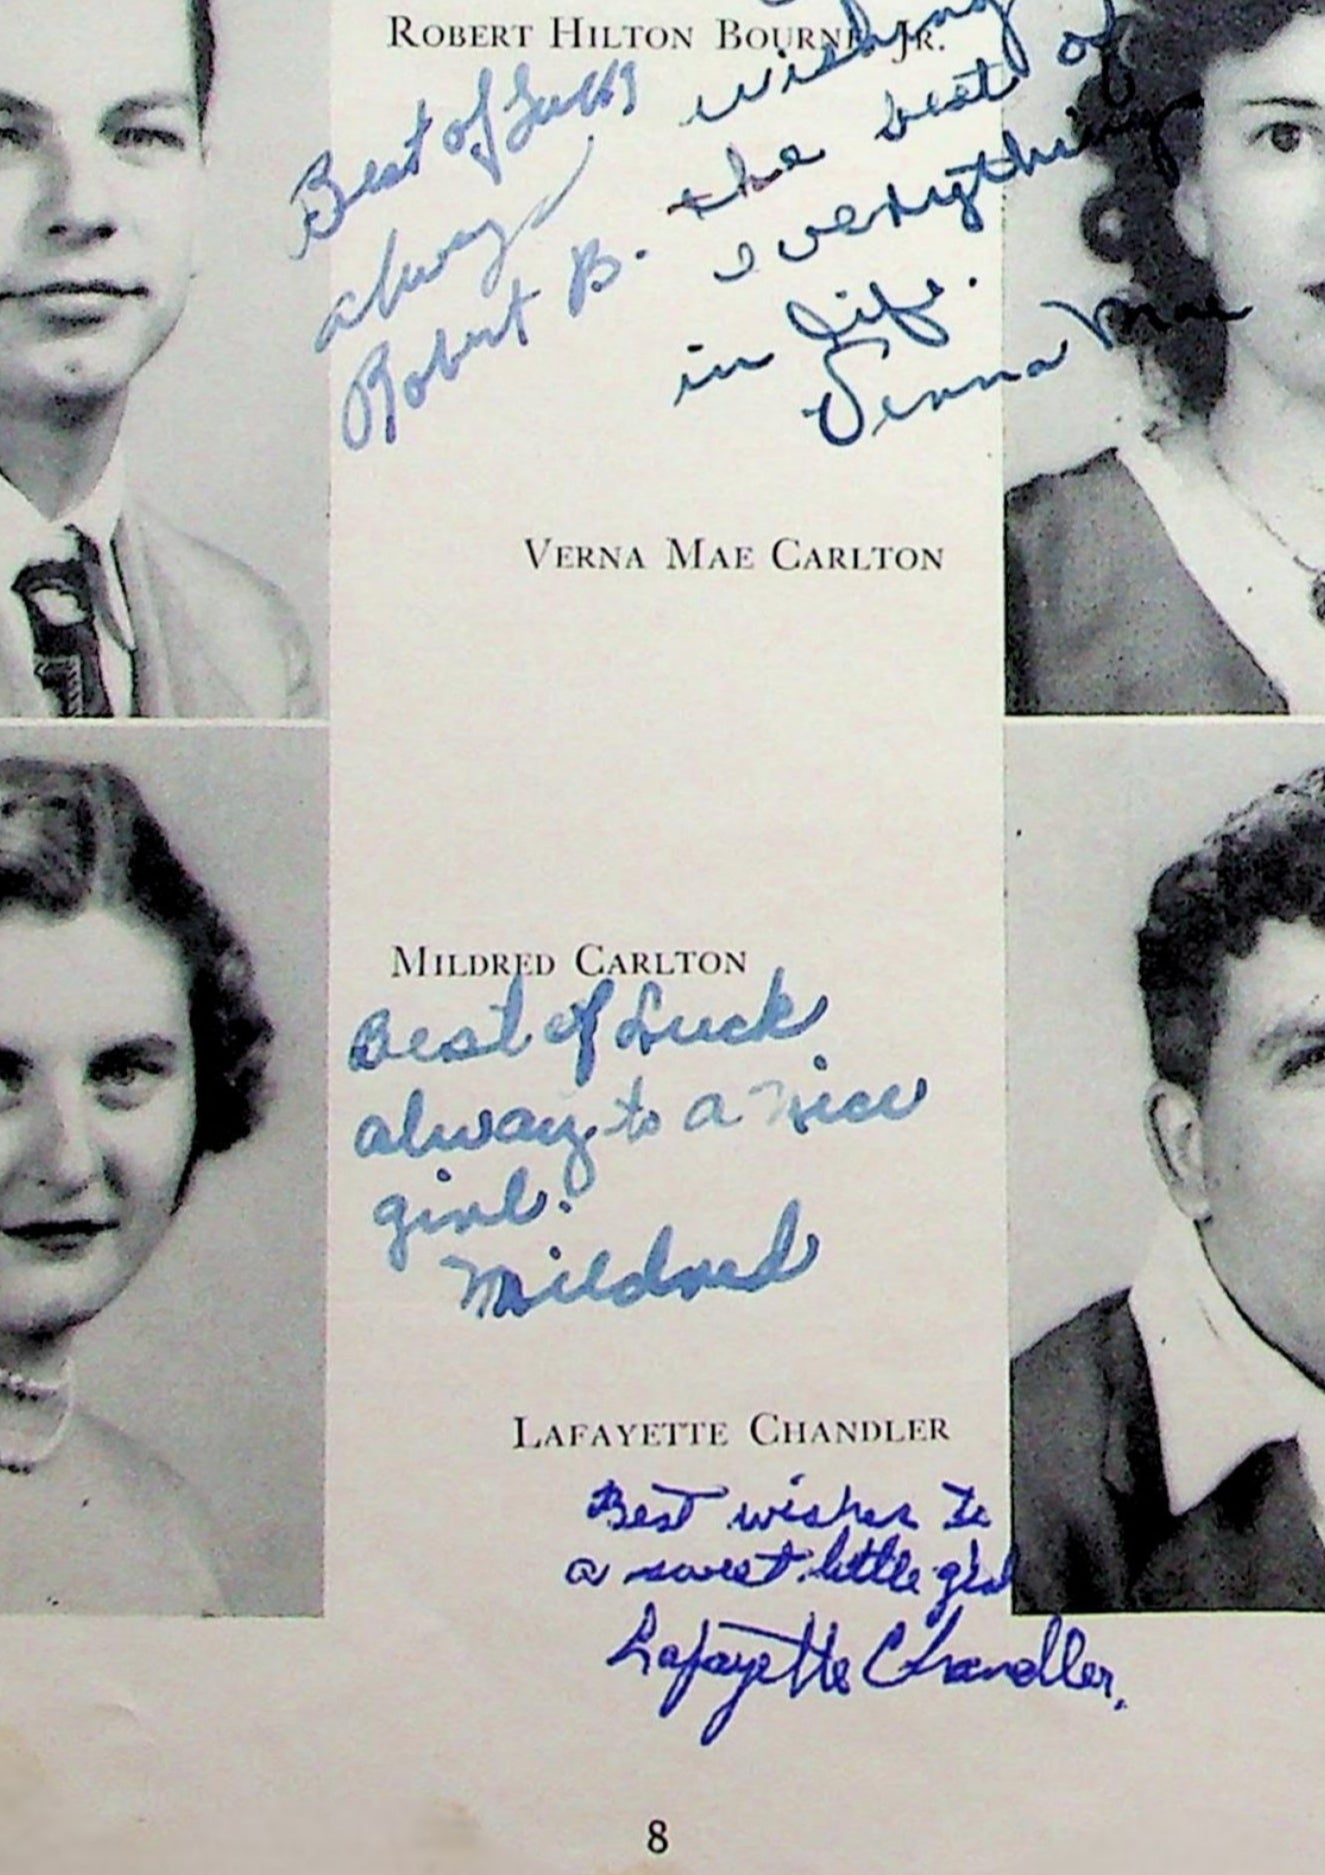 ROBERT HILTON BOURNE, JR.
Best of Luck
always
Robert B.
wishing
the best of
everything
in life.
Verna Mae
VERNA MAE CARLTON
MILDRED CARLTON
Best of Luck
always to a nice
girl.
Mildred
LAFAYETTE CHANDLER
Best wishes to
a sweet little girl
Lafayette Chandler.
8